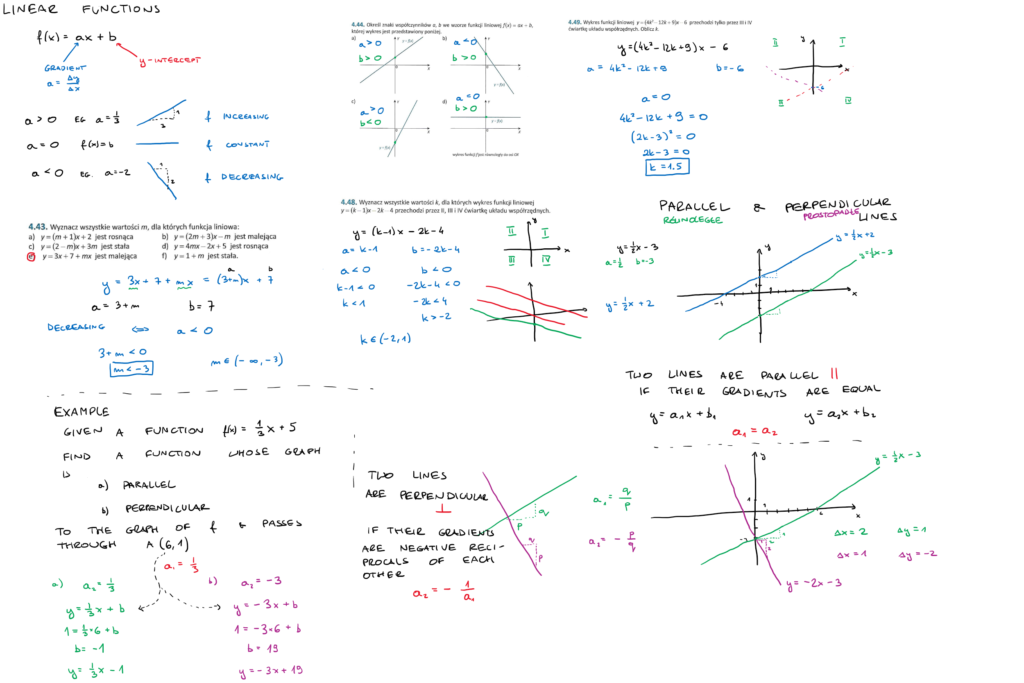 LINEAR FUNCTIONS
f(x) = ax + b
GRADIENT
a = Δy/Δx
y-INTERCEPT
a > 0 EG. a = 1/3
1
3
f INCREASING
a = 0 f(x) = b
f CONSTANT
a < 0 EG. a = -2
1
2
f DECREASING
4.43. Wyznacz wszystkie wartości m, dla których funkcja liniowa:
a) y = (m + 1)x + 2 jest rosnąca b) y = (2m + 3)x − m jest malejąca
c) y = (2 − m)x + 3m jest stała d) y = 4mx − 2x + 5 jest rosnąca
e) y = 3x + 7 + mx jest malejąca f) y = 1 + m jest stała.
a b
y = 3x + 7 + mx = (3+m)x + 7
a = 3 + m b = 7
DECREASING ⟺ a < 0
3 + m < 0
m < -3
m ∈ (-∞, -3)
EXAMPLE
GIVEN A FUNCTION f(x) = 1/3 x + 5
FIND A FUNCTION WHOSE GRAPH
IS
a) PARALLEL
b) PERPENDICULAR
TO THE GRAPH OF f & PASSES
THROUGH A (6, 1)
a₁ = 1/3
a) a₂ = 1/3
y = 1/3 x + b
1 = 1/3 · 6 + b
b = -1
y = 1/3 x - 1
b) a₂ = -3
y = -3x + b
1 = -3·6 + b
b = 19
y = -3x + 19
4.44. Określ znaki współczynników a, b we wzorze funkcji liniowej f(x) = ax + b,
której wykres jest przedstawiony poniżej.
a) a > 0
b > 0
b) a < 0
b > 0
c) a > 0
b < 0
d) a = 0
b > 0
4.48. Wyznacz wszystkie wartości k, dla których wykres funkcji liniowej
y = (k − 1)x − 2k − 4 przechodzi przez II, III i IV ćwiartkę układu współrzędnych.
y = (k-1)x - 2k - 4
a = k-1 b = -2k-4
a < 0 b < 0
k-1 < 0 -2k-4 < 0
k < 1 -2k < 4
k > -2
k ∈ (-2, 1)
II I
III IV
y
x
TWO LINES
ARE PERPENDICULAR
⊥
IF THEIR GRADIENTS
ARE NEGATIVE RECI-
PROCALS OF EACH
OTHER
a₂ = - 1/a₁
p
q
q
p
a₁ = q/p
a₂ = - p/q
4.49. Wykres funkcji liniowej y = (4k² − 12k + 9)x − 6 przechodzi tylko przez III i IV
ćwiartkę układu współrzędnych. Oblicz k.
y = (4k² - 12k + 9)x - 6
a = 4k² - 12k + 9 b = -6
a = 0
4k² - 12k + 9 = 0
(2k-3)² = 0
2k - 3 = 0
k = 1.5
II I
III IV
x
PARALLEL & PERPENDICULAR
RÓWNOLEGŁE PROSTOPADŁE
LINES
y = 1/2 x - 3
a = 1/2 b = -3
y = 1/2 x + 2
y
x
-4
y = 1/2 x + 2
y = 1/2 x - 3
TWO LINES ARE PARALLEL ||
IF THEIR GRADIENTS ARE EQUAL
y = a₁x + b₁ y = a₂x + b₂
a₁ = a₂
y
x
y = 1/2 x - 3
Δx = 2 Δy = 1
Δx = 1 Δy = -2
y = -2x - 3